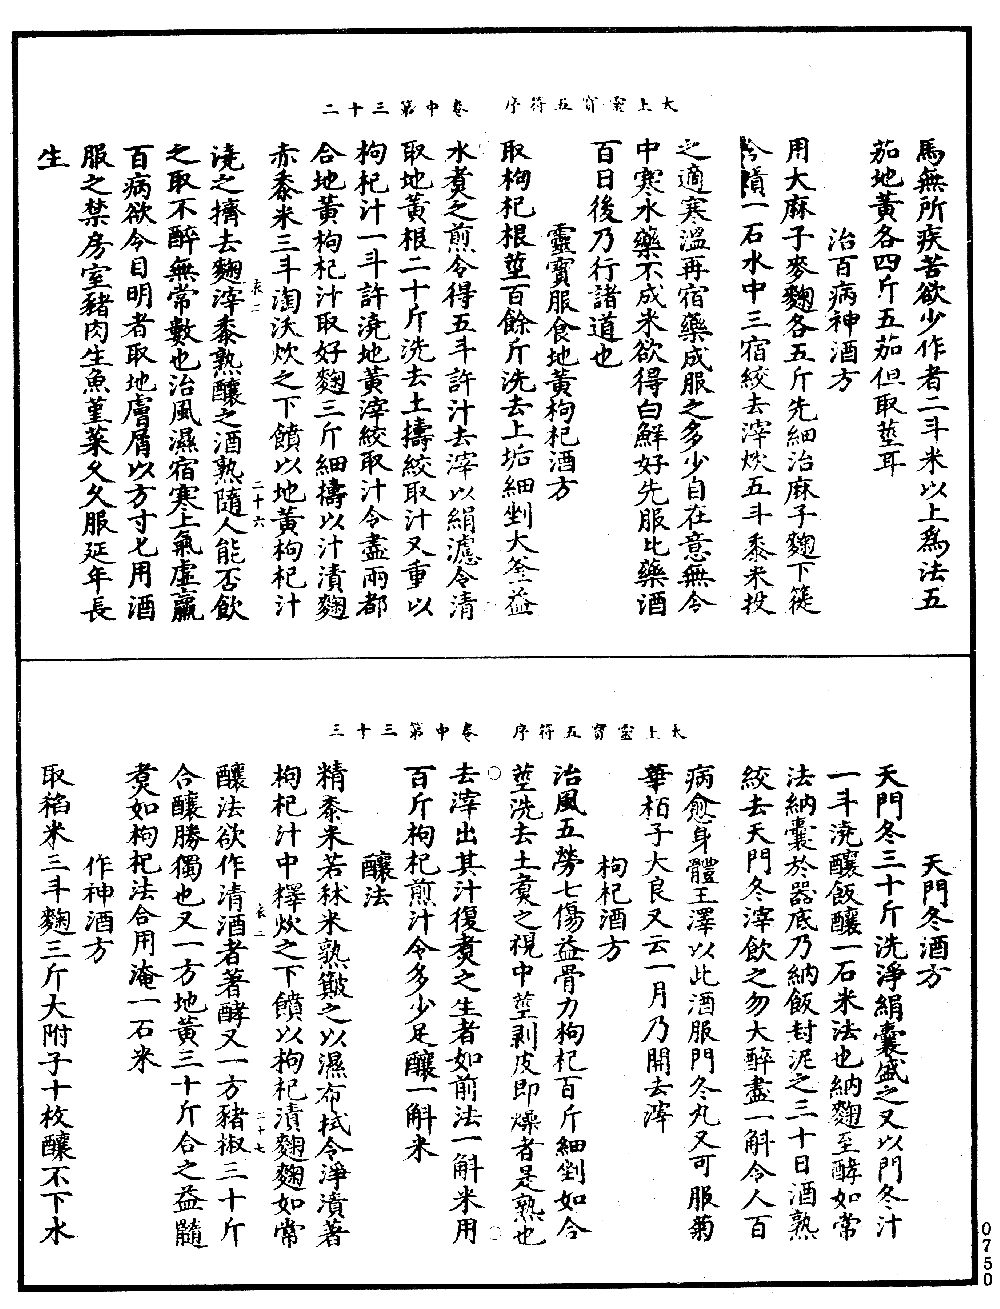 太上靈寳五符序　卷中第三十二
馬無所疾苦欲少作者二斗米以上爲法五
茄地黃各四斤五茄但取莖耳
治百病神酒方
用大麻子麥麴各五斤先細治麻子麴下篵
合積一石水中三宿絞去滓炊五斗黍米投
之適寒溫再宿藥成服之多少自在意無令
中寒水藥不成米欲得白鮮好先服比藥酒
百日後乃行諸道也
靈寶服食地黃枸杞酒方
取枸杞根莖百餘斤洗去上垢細剉大釜益
水煮之煎令得五斗許汁去滓以絹濾令清
取地黃根二十斤洗去土擣絞取汁又重以
枸杞汁一斗許澆地黃滓絞取汁令盡兩都
合地黃枸杞汁取好麴三斤細擣以汁漬麴
赤黍米三斗淘沃炊之下饙以地黃枸杞汁
表二　二十六
澆之擠去麴滓黍熟釀之酒熟隨人能否飮
之取不醉無常數也治風濕宿寒上氣虛羸
百病欲令目明者取地膚屑以方寸匕用酒
服之禁房室豬肉生魚菫菜久久服延年長
生
太上靈寳五符序　卷中第三十三
天門冬酒方
天門冬三十斤洗淨絹囊盛之又以門冬汁
一斗澆釀飯釀一石米法也納麴至酵如常
法納囊於器底乃納飯封泥之三十日酒熟
絞去天門冬滓飲之勿大醉盡一斛令人百
病愈身體王澤以此酒服門冬丸又可服菊
華栢子大良又云一月乃開去滓
枸杞酒方
治風五勞七傷益骨力枸杞百斤細剉如合
莖洗去土煮之視中莖剥皮即燥者是熟也
去滓出其汁復煮之生者如前法一斛米用
百斤枸杞煎汁令多少足釀一斛米
釀法
精黍米若秫米熟簸之以濕布拭令淨漬著
枸杞汁中釋炊之下饙以枸杞漬麴麴如常
表一　二十七
釀法欲作清酒者著酵又一方豬椒三十斤
合釀勝獨也又一方地黃三十斤合之益髓
煮如枸杞法合用淹一石米
作神酒方
取稻米三斗麴三斤大附子十枚釀不下水
0750